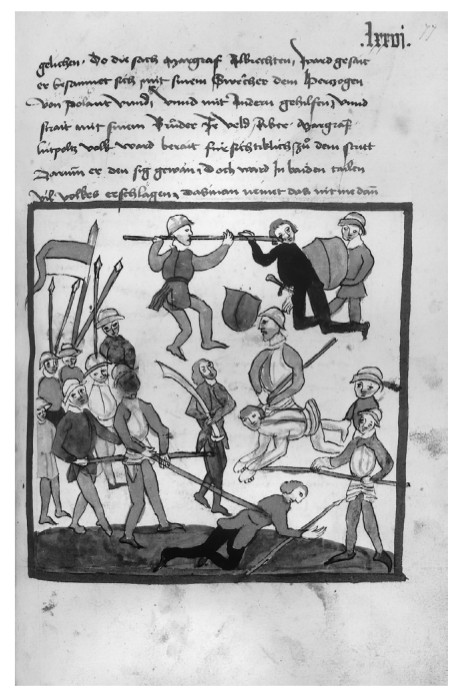 .lxxvj. 77
gelichen, Do die sach Margraf Albrechten, ward geseit
er besamnet sich mit sinem Swecher dem Herzogen
von Polant vnnd, vnnd mit Andern gehilfen, vnnd
strait mit sinem Brůder ze veld, Aber Margraf
lútpoltz volk ward berait fürsichtiklich zů dem stritt
Darum er den sig gewan, Doch ward In baiden tailen
vil volkes erschlagen, das man nemet das mit